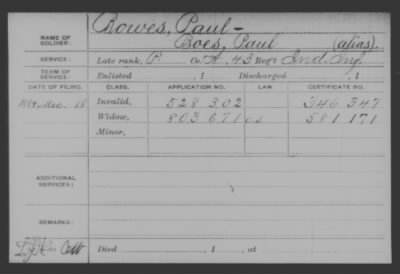 NAME OF SOLDIER: Bowes, Paul -
Boes, Paul (alias).
SERVICE: Late rank, P. Co. A, 43 Reg't Ind. Inf.
TERM OF SERVICE: Enlisted , 1 Discharged , 1
DATE OF FILING. CLASS. APPLICATION NO. LAW. CERTIFICATE NO.
Invalid, 528 302 346 347
Widow, 803 671 581 171
Minor,
ADDITIONAL SERVICES:
REMARKS:
Died , 1 , at